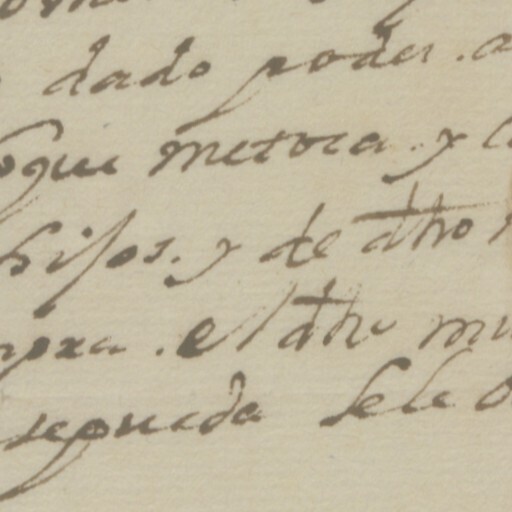 dado poder . a
que metoca . y
hijos . y de dho
. el dho
sepueda sele